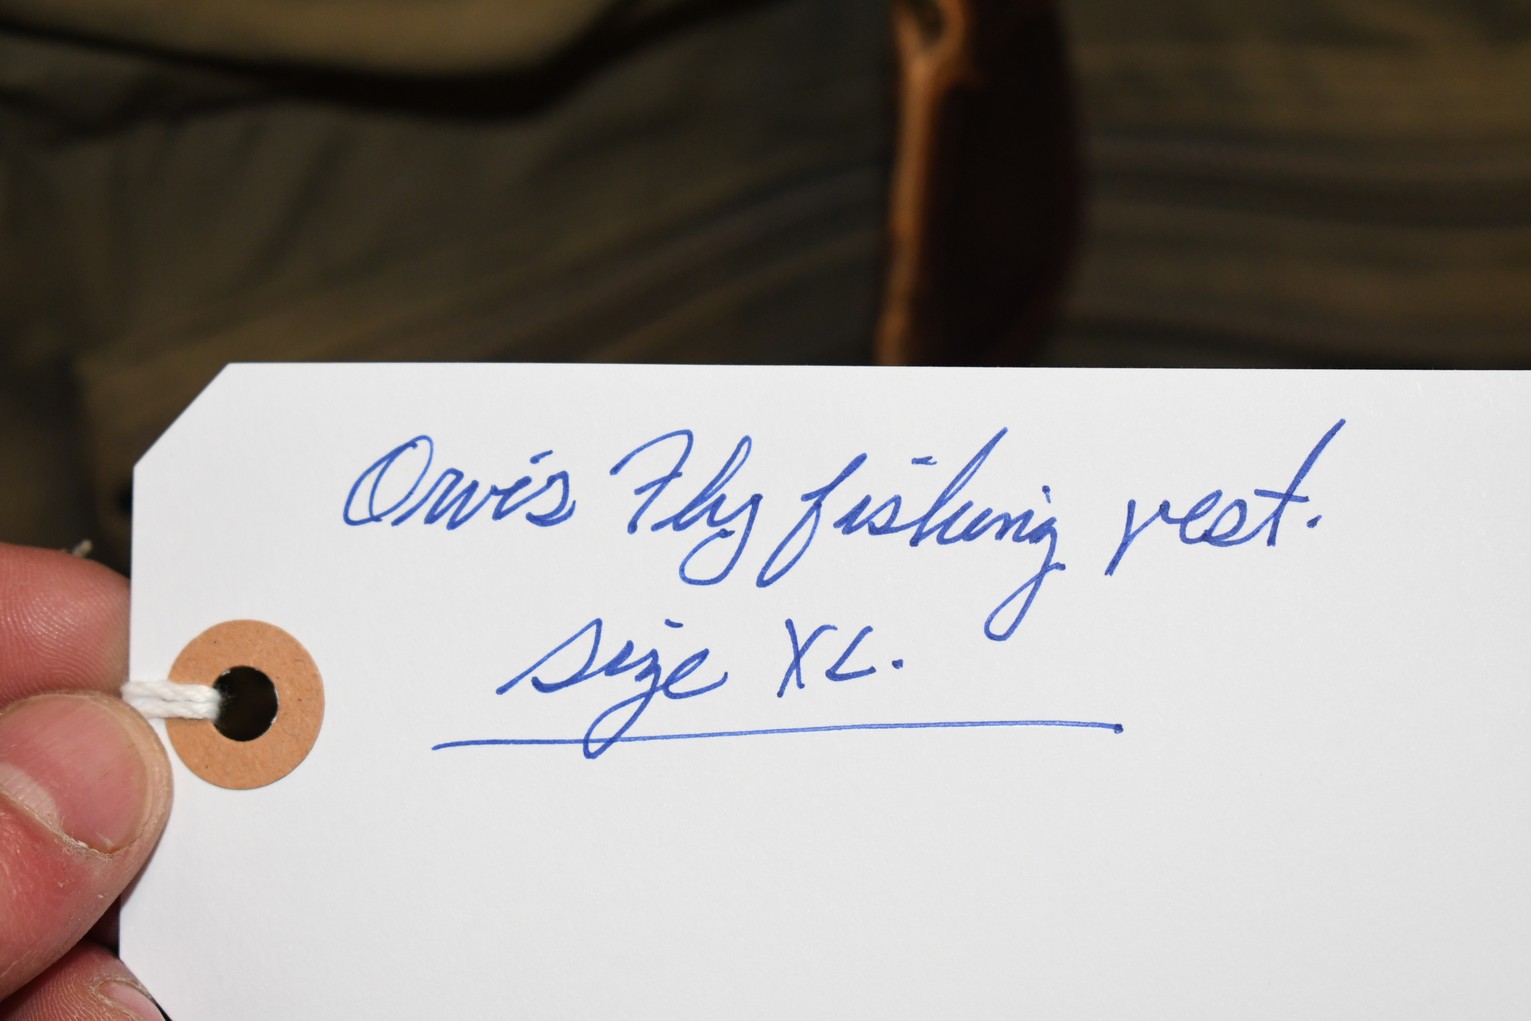 Orvis Fly fishing vest.
size XL.